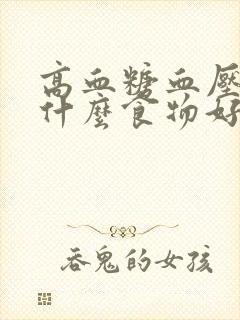 高血糖血壓
什麼食物好
吞鬼的女孩